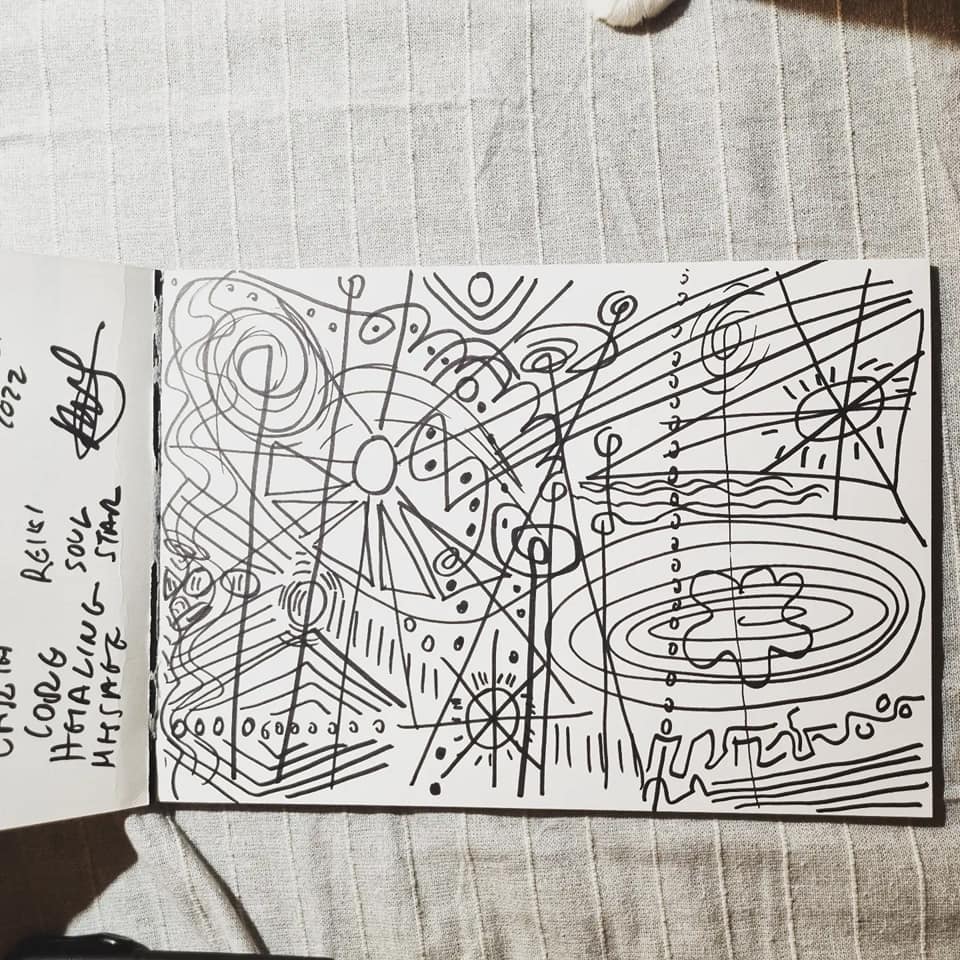 2022
CODE REIKI
HEALING SOUL
MESSAGE STAR